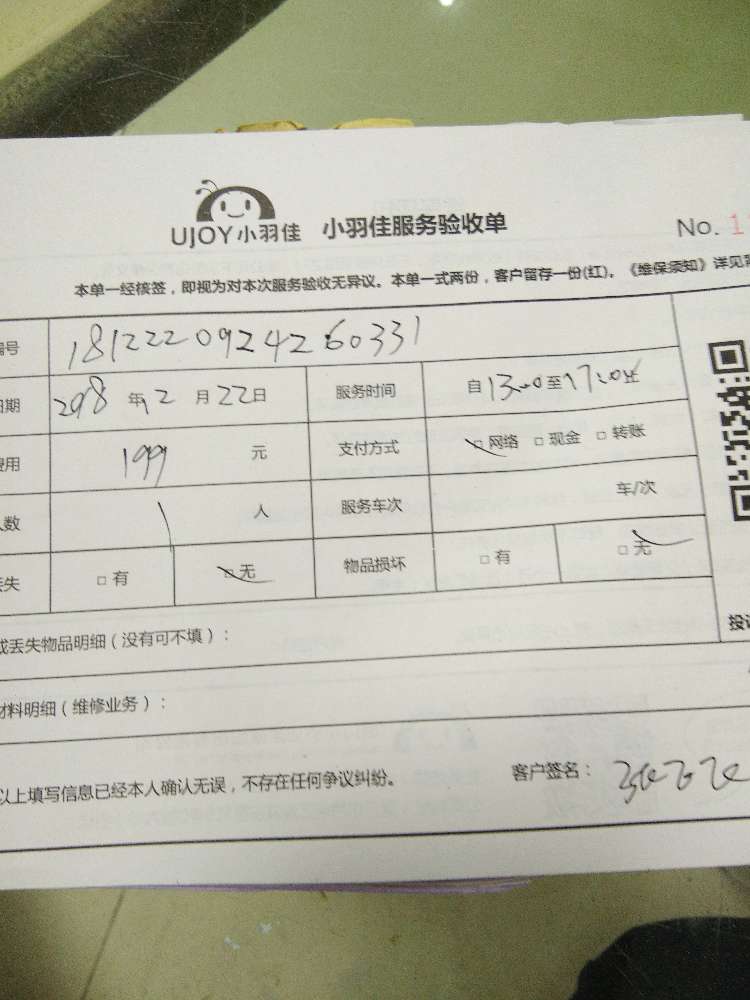 UJOY小羽佳 小羽佳服务验收单 No. 1
本单一经核签，即视为对本次服务验收无异议。本单一式两份，客户留存一份(红)。《维保须知》详见背
编号 181222092426 0331
日期 2018 年 12 月 22 日 服务时间 自 13:00 至 17:00 止
费用 199 元 支付方式 □ 网络 □ 现金 □ 转账
人数 1 人 服务车次 车/次
丢失 □ 有 □ 无 物品损坏 □ 有 □ 无
或丢失物品明细（没有可不填）： 投诉
材料明细（维修业务）：
以上填写信息已经本人确认无误，不存在任何争议纠纷。 客户签名：